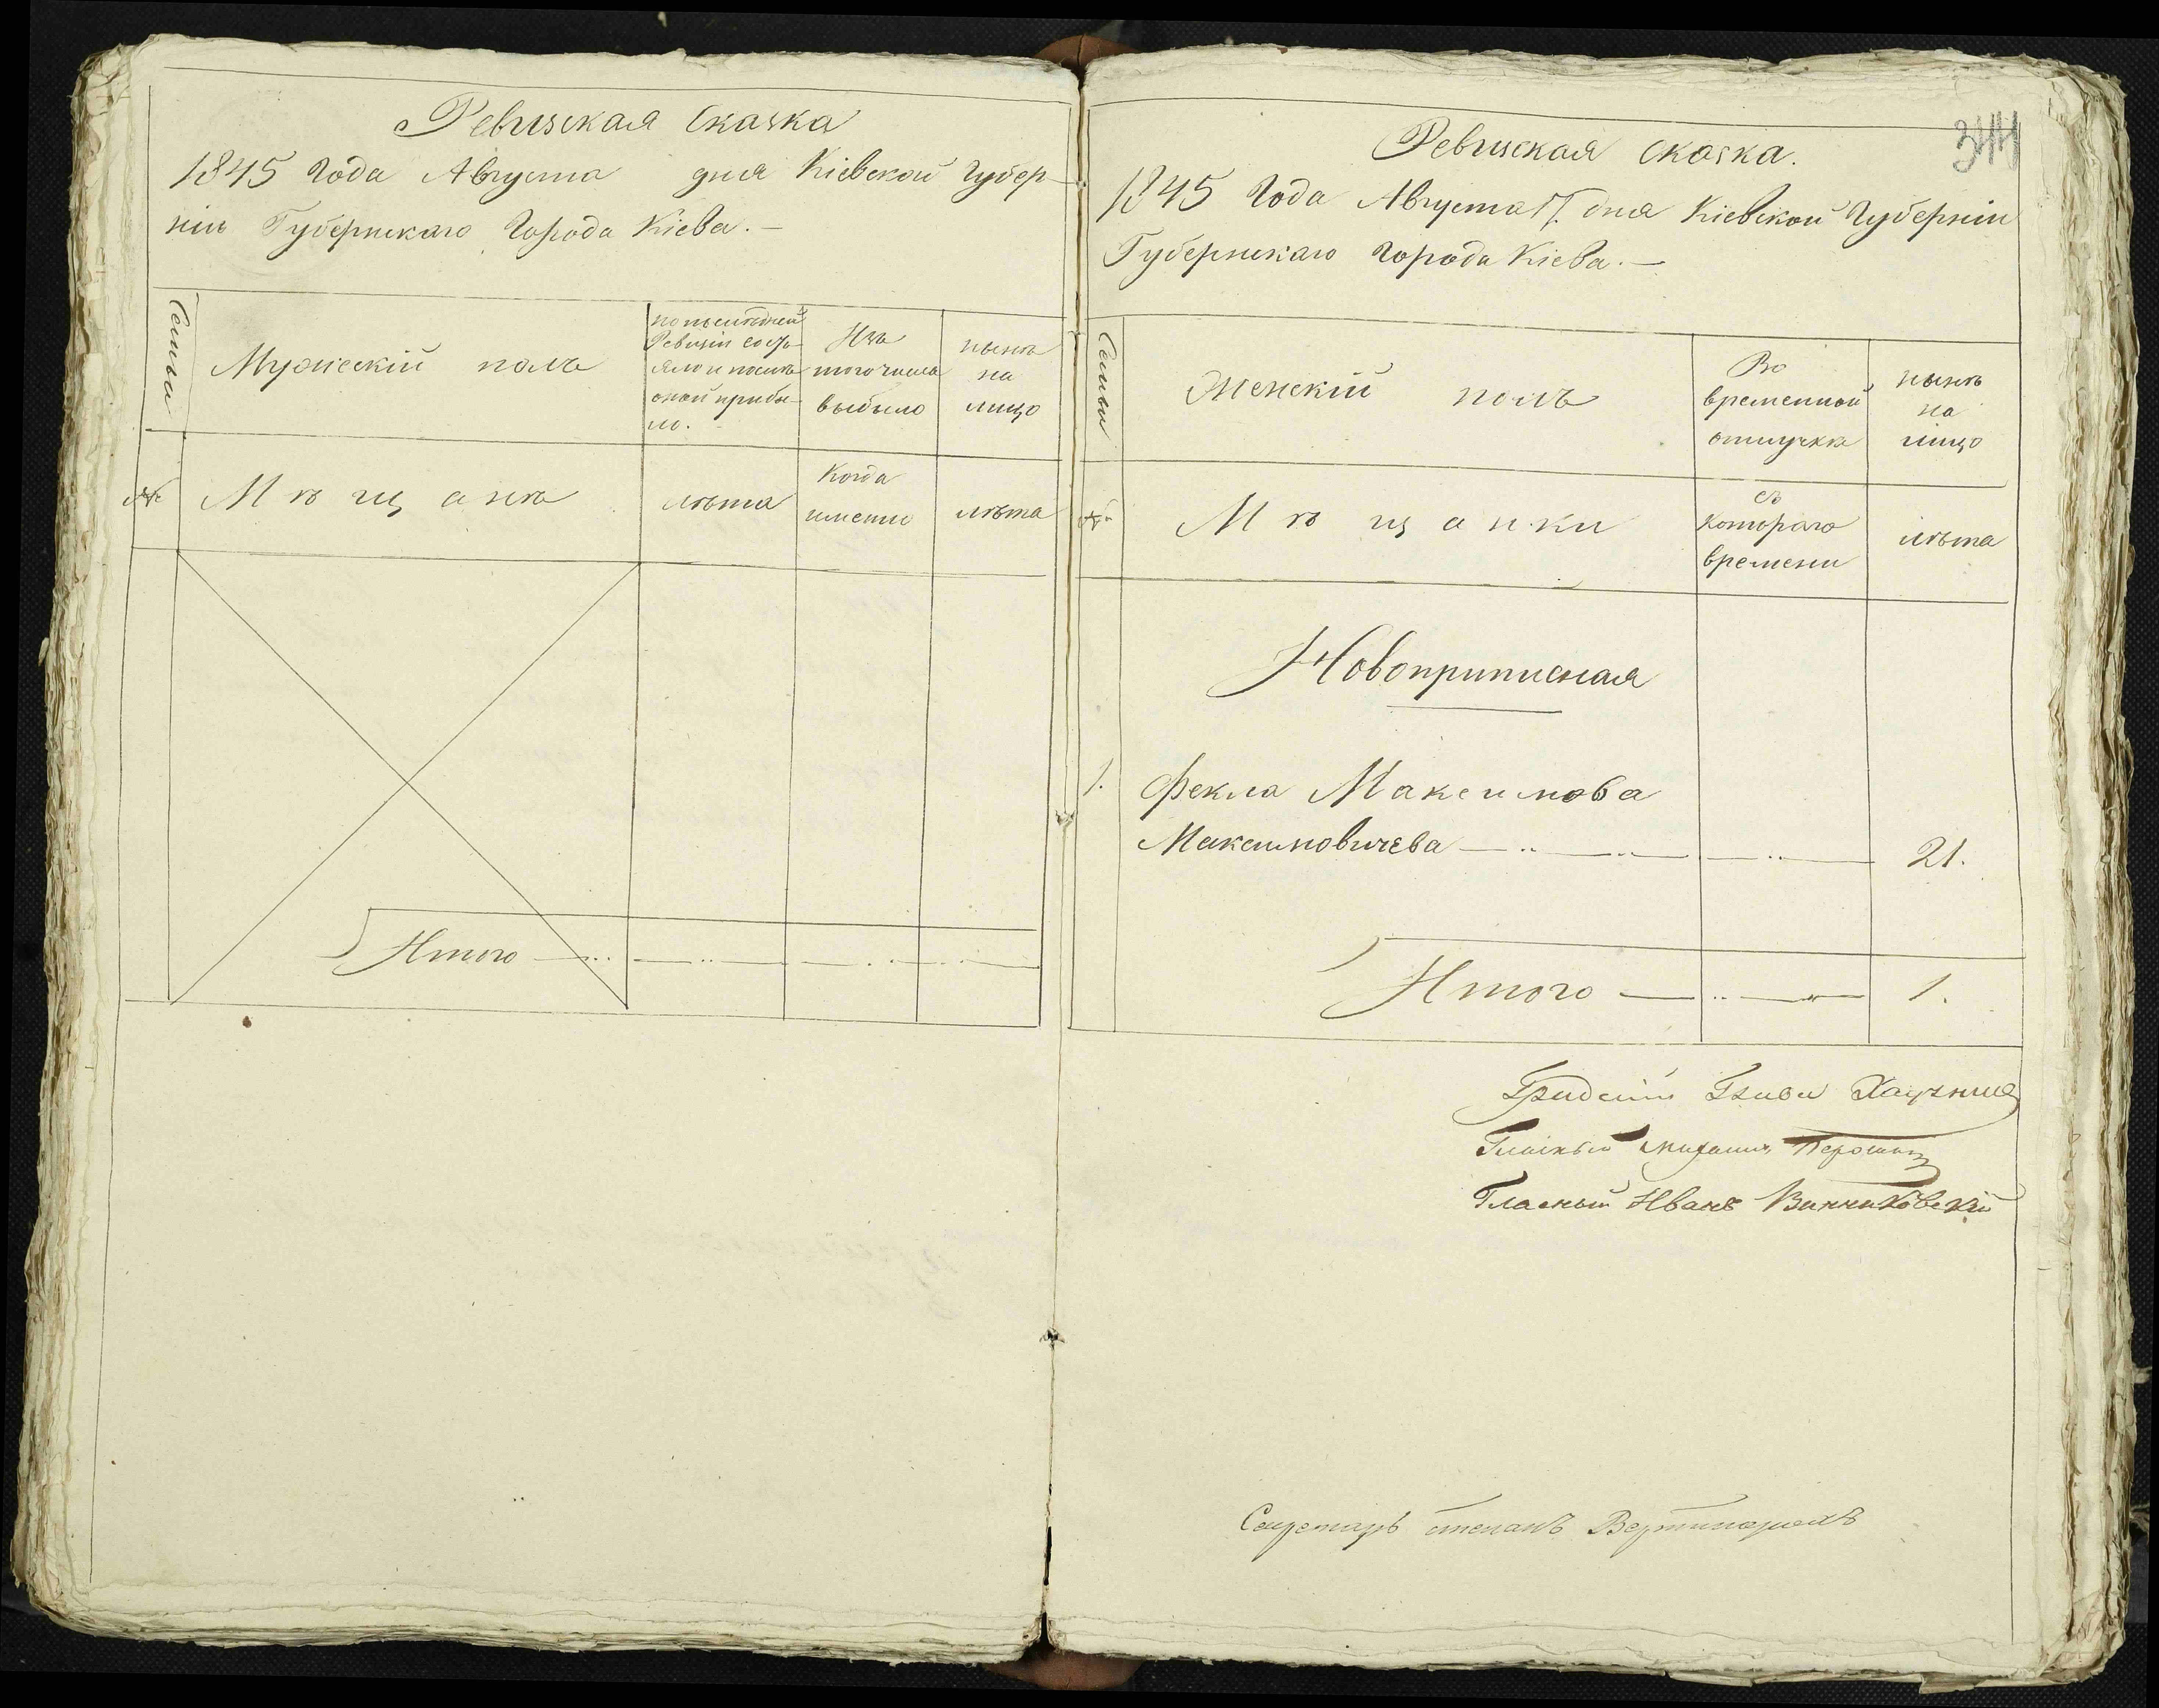 Ревизская Сказка
1845 Года Августа дня Кіевской Губер-
ніи Губернскаго Города Кіева.—
Семьи
Мужескій полъ
по послѣдней
Ревизіи состо-
яло и послѣ
оной прибы-
ло.
Изъ
того числа
выбыло
нынѣ
на
лицо
№
Мѣщане
лѣта
Когда
именно
лѣта
Итого
344
Ревизская Сказка.
1845 Года Августа 17. дня Кіевской Губерніи
Губернскаго Города Кіева.—
Семьи
Женскій полъ
Во
временной
отлучкѣ
нынѣ
на
лицо
№
Мѣщанки
съ
котораго
времени
лѣта
Новоприписная
1. Фекла Максимова
Максимовичева 21.
Итого 1.
Гласный Михаилъ
Гласный Иванъ Винниковскій
Секретарь Степанъ